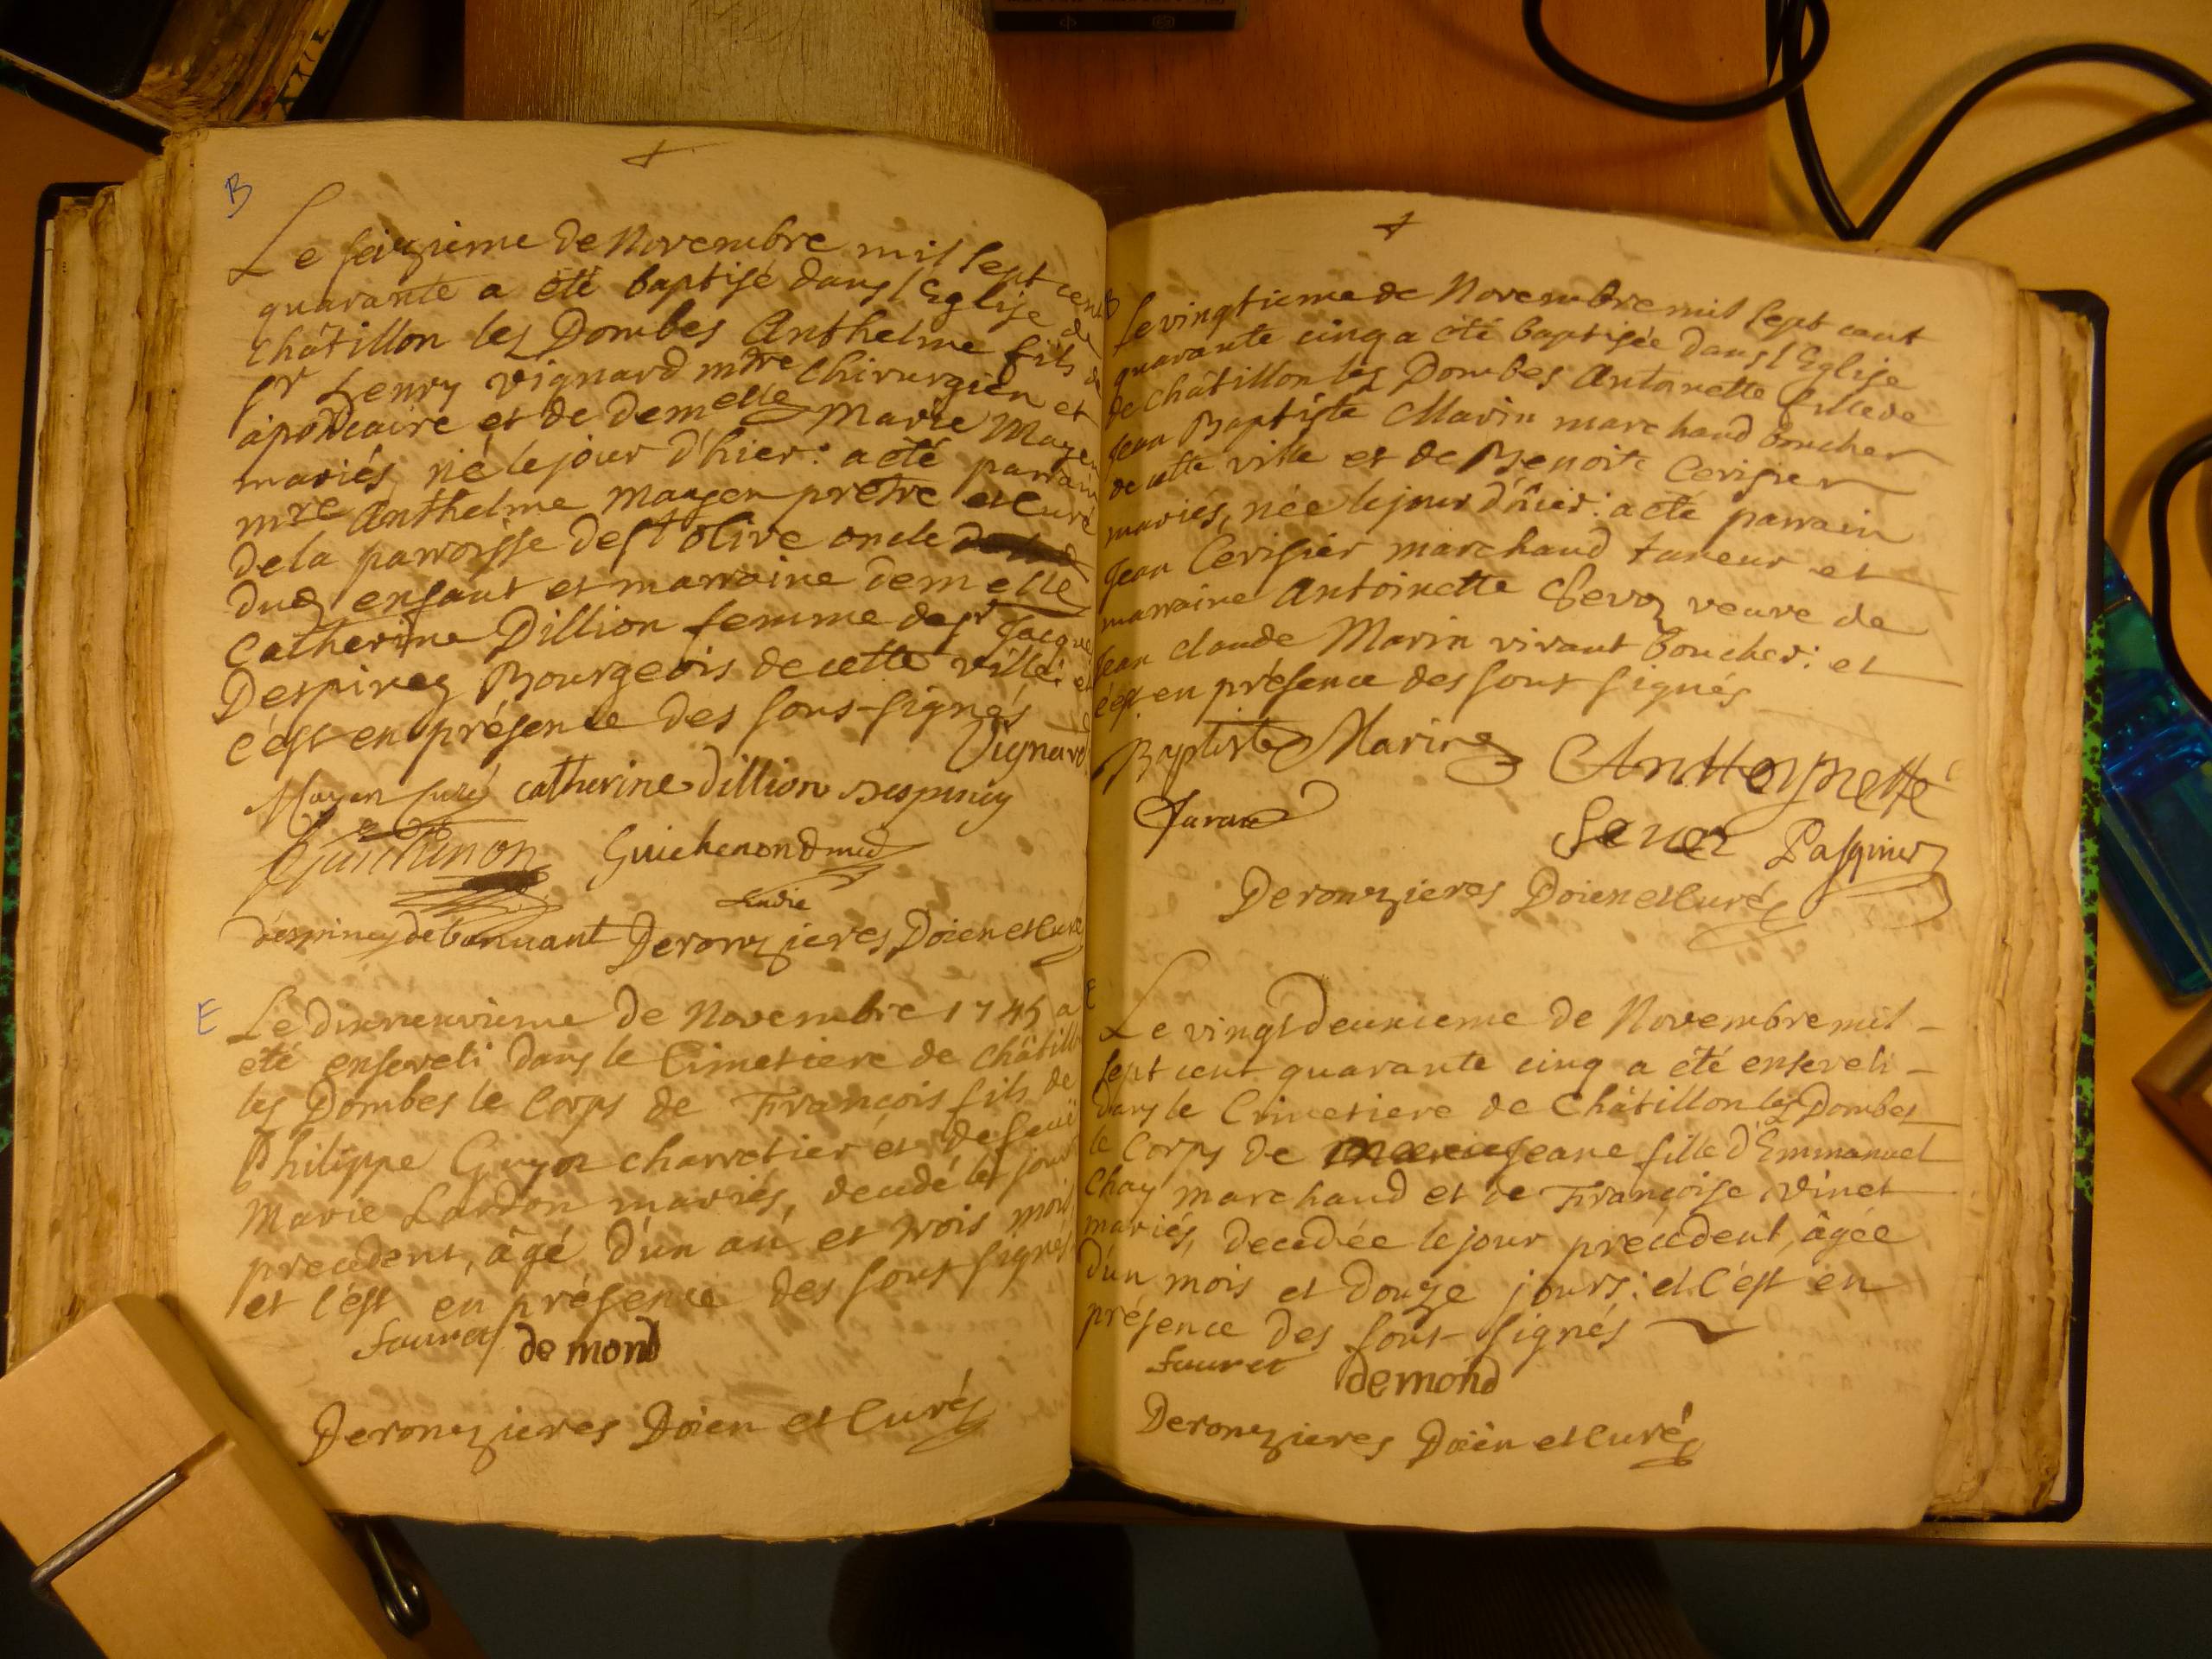 B
Le seizieme de Novembre mil sept cent
quarante a été baptisé dans l'Eglise de
Châtillon les Dombes Anthelme fils de
Sr Henry Vignard mtre Chirurgien et
apoticaire et de demelle Marie Mayen
mariés, né le jour d'hier: a été parrain
mre Anthelme Mayen prêtre et Curé
de la parroisse de St Olive oncle
dud enfant et marraine demelle
Catherine Dillion femme de Sr Jacques
Despiney Bourgeois de cette ville: et
c'est en présence des sous-signés
Vignard
Mayen Curé catherine dillion Despiney
Guichenon Guichenon d med
despiney de bannant Deronzieres Doien et Curé
E
Le dixneuvieme de Novembre 1745 a
été enseveli dans le Cimetiere de Châtillon
les Dombes le Corps de François fils de
Philippe Guyot charretier et de feüe
Marie Lardon mariés, decedé le jour
precedent, âgé d'un an et trois mois
et c'est en présence des sous signés
fauret demond
Deronzieres Doien et Curé
B
Le vingtieme de Novembre mil sept cent
quarante cinq a été baptisée dans l'Eglise
de Châtillon les Dombes Antoinette fille de
Jean Baptiste Marin marchand boucher
de cette ville et de Benoite Cerisier
mariés, née le jour d'hier: a été parrain
Jean Cerisier marchand taneur et
marraine Antoinette Sevoz veuve de
Jean claude Marin vivant boucher: et
c'est en présence des sous signés
Baptiste Marin Anttoynette
Sevoz Pasquier
Deronzieres Doien et Curé
E
Le vingtdeuxieme de Novembre mil
sept cent quarante cinq a été enseveli
dans le Cimetiere de Châtillon les Dombes
le Corps de Jeane fille d'Emmanuel
Chay marchand et de Françoise Vinet
mariés, decedée le jour précedent, âgée
d'un mois et douze jours: et c'est en
présence des sous-signés
fauret demond
Deronzieres Doien et Curé